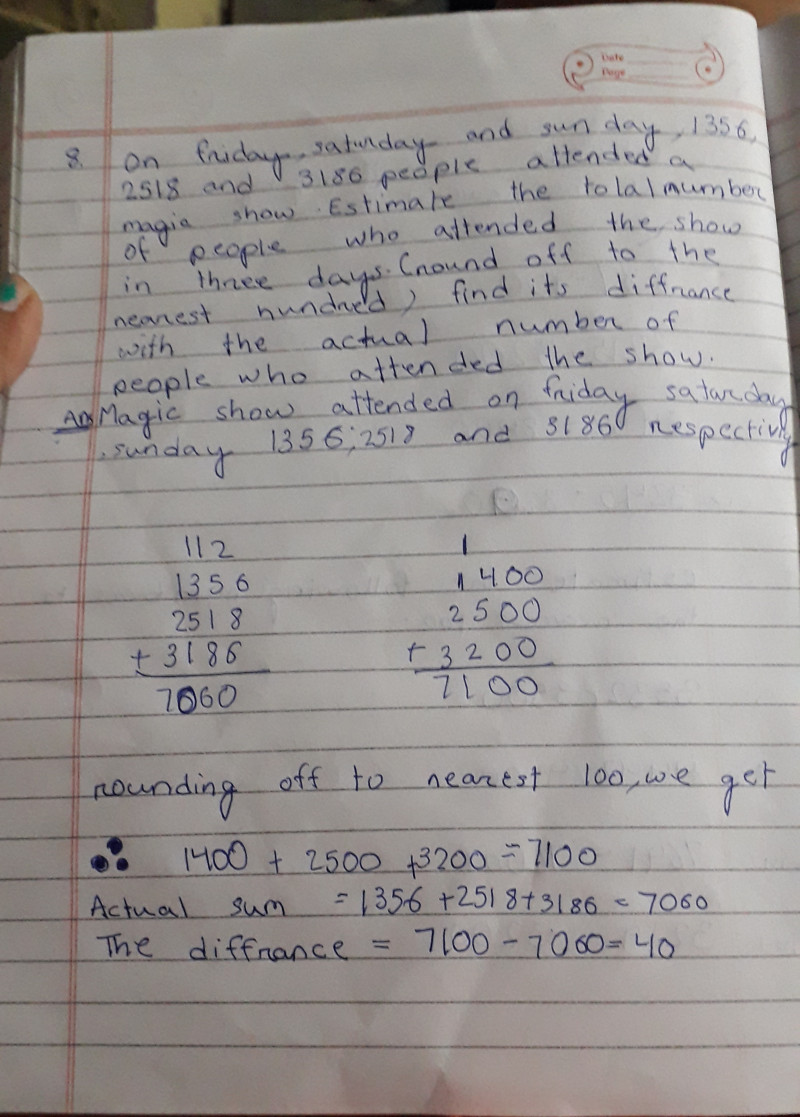 Date
Page
8. On friday, saturday and sunday, 1356,
2518 and 3186 people attended a
magic show. Estimate the total number
of people who attended the show
in three days. (round off to the
nearest hundred) find its diffrance
with the actual number of
people who attended the show.
Ans Magic show attended on friday saturday
. sunday 1356, 2518 and 3186 respectivly
112 1
1356 1400
2518 2500
+ 3186 + 3200
7060 7100
rounding off to nearest 100, we get
∴ 1400 + 2500 + 3200 = 7100
Actual sum = 1356 + 2518 + 3186 = 7060
The diffrance = 7100 - 7060 = 40